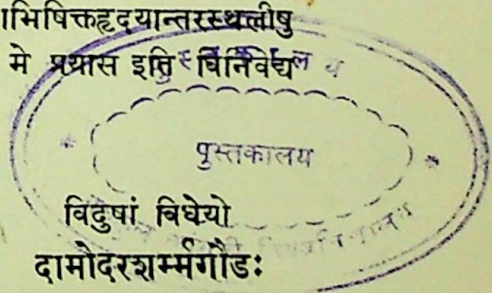 ाभिषिक्तहृदयान्तरस्थलीषु
मे प्रयास इति विनिवेद्य
पुस्तकालय
विदुषां विधेयो
दामोदरशर्म्मगौडः